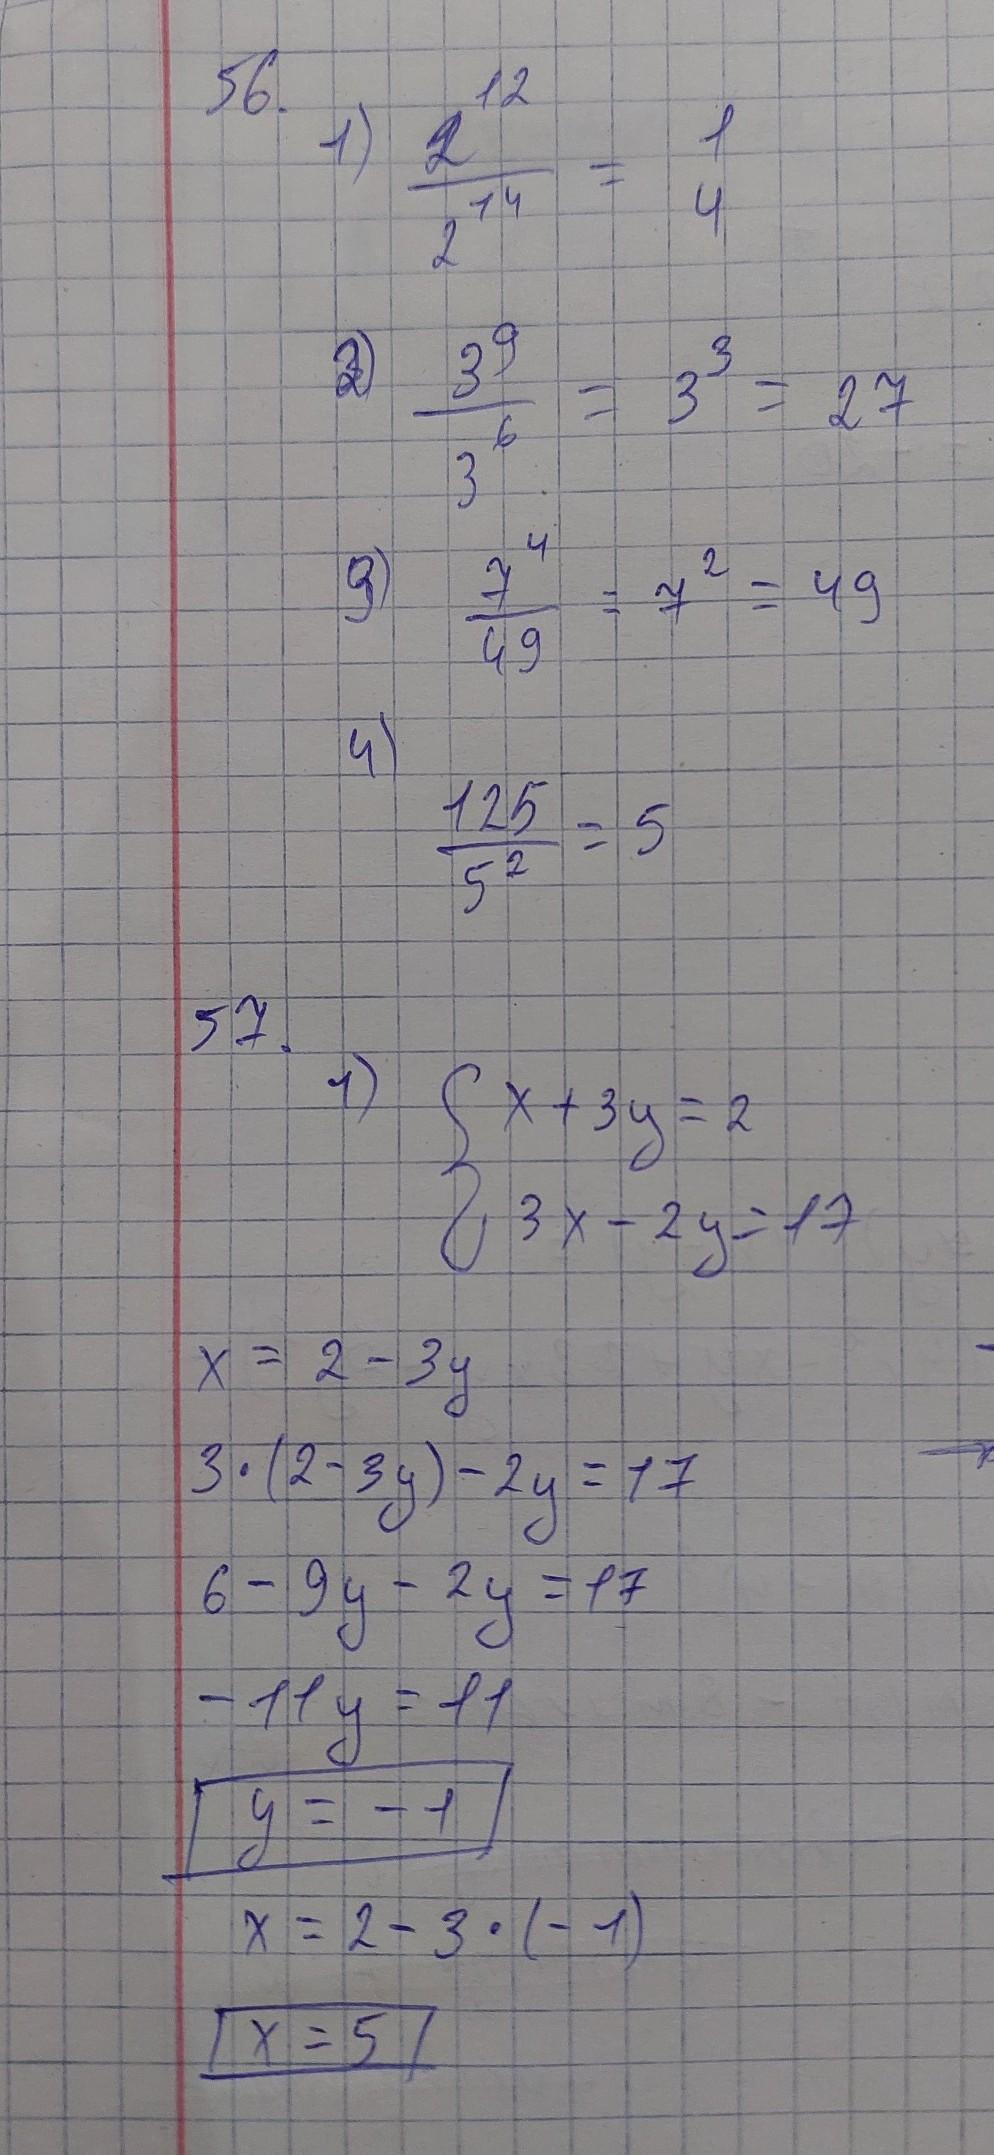 56.
1) 2^12 / 2^14 = 1 4
2) 3^9 / 3^6 = 3^3 = 27
3) 7^4 / 49 = 7^2 = 49
4)
125 / 5^2 = 5
57.
1) { x + 3y = 2
3x - 2y = 17
x = 2 - 3y
3·(2 - 3y) - 2y = 17
6 - 9y - 2y = 17
-11y = 11
y = -1
x = 2 - 3·(-1)
x = 5